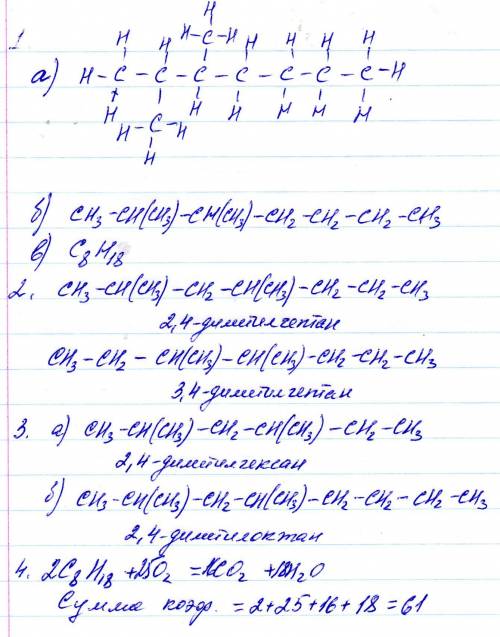 1
H
H H H-C-H H H H H
а) H-C-C-C-C-C-C-C-H
H H H H H H
H-C-H
H
б) CH₃-CH(CH₃)-CH(CH₃)-CH₂-CH₂-CH₂-CH₃
в) C₈H₁₈
2. CH₃-CH(CH₃)-CH₂-CH(CH₃)-CH₂-CH₂-CH₃
2,4-диметилгептан
CH₃-CH₂-CH(CH₃)-CH(CH₃)-CH₂-CH₂-CH₃
3,4-диметилгептан
3. а) CH₃-CH(CH₃)-CH₂-CH(CH₃)-CH₂-CH₃
2,4-диметилгексан
б) CH₃-CH(CH₃)-CH₂-CH(CH₃)-CH₂-CH₂-CH₂-CH₃
2,4-диметилоктан
4. 2C₈H₁₈ + 25O₂ = 16CO₂ + 18H₂O
Сумма коэф. = 2+25+16+18=61